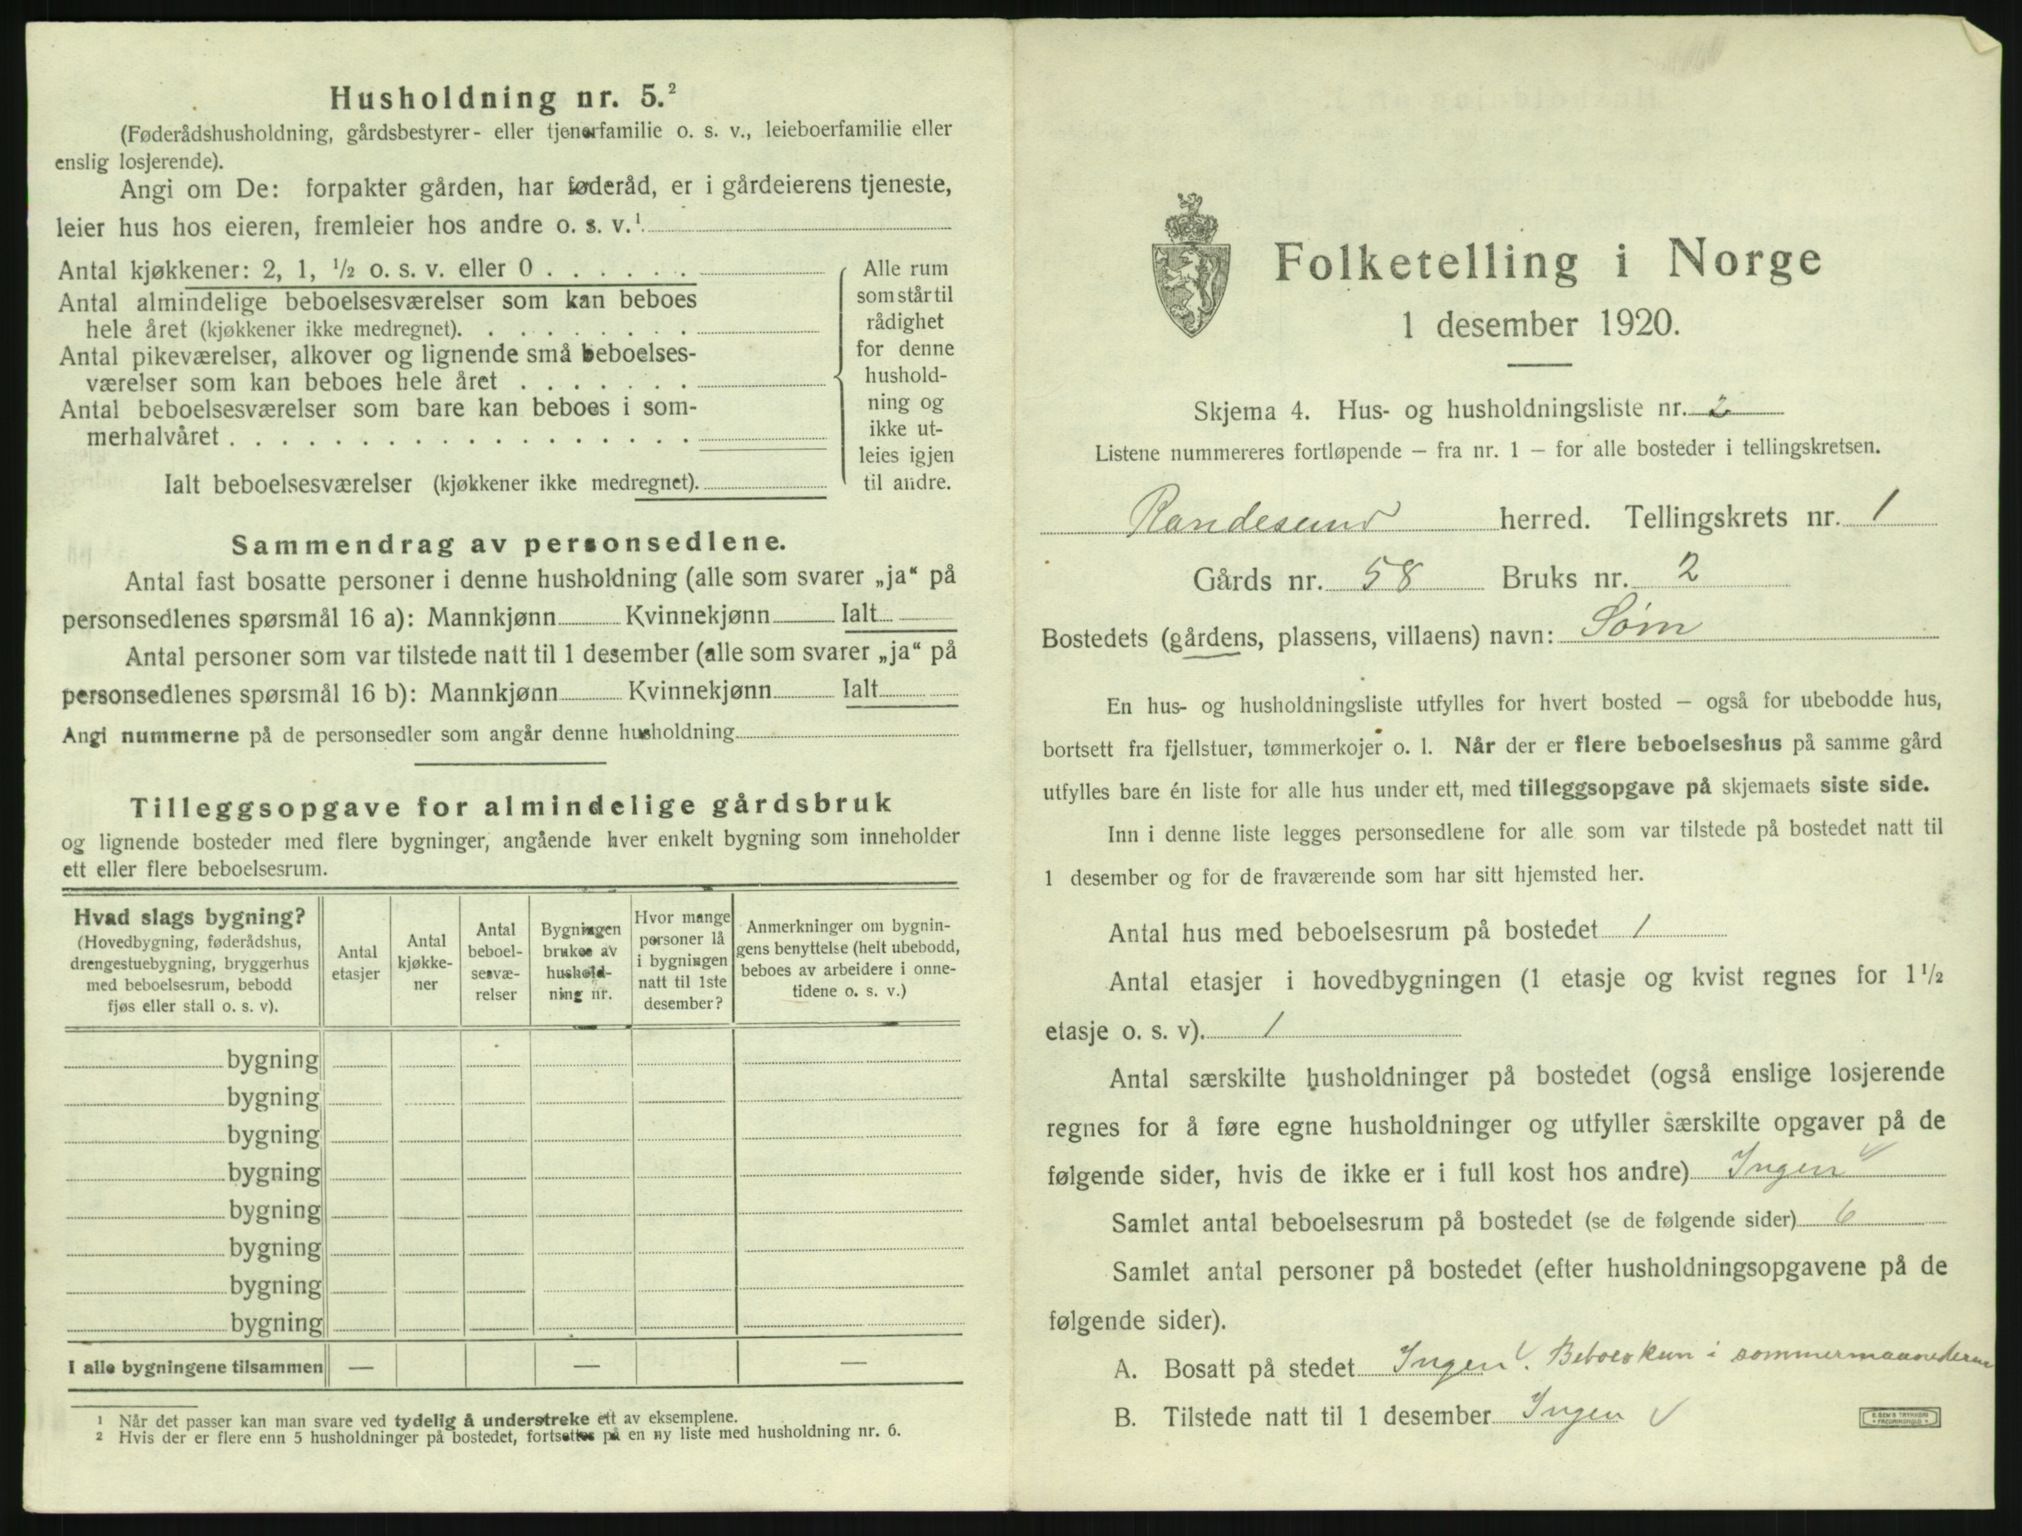 Husholdning nr. 5.²
(Føderådshusholdning, gårdsbestyrer- eller tjenerfamilie o. s. v., leieboerfamilie eller
enslig losjerende).
Angi om De: forpakter gården, har føderåd, er i gårdeierens tjeneste,
leier hus hos eieren, fremleier hos andre o. s. v.¹
Antal kjøkkener: 2, 1, ½ o. s. v. eller 0 . . . . . .
Antal almindelige beboelsesværelser som kan beboes
hele året (kjøkkener ikke medregnet). . . . . . . . .
Antal pikeværelser, alkover og lignende små beboelses-
værelser som kan beboes hele året . . . . . . .
Antal beboelsesværelser som bare kan beboes i som-
merhalvåret . . . . . . . . . . . . . . . . . .
Ialt beboelsesværelser (kjøkkener ikke medregnet).
Alle rum
som står til
rådighet
for denne
hushold-
ning og
ikke ut-
leies igjen
til andre.
Sammendrag av personsedlene.
Antal fast bosatte personer i denne husholdning (alle som svarer „ja“ på
personsedlenes spørsmål 16 a): Mannkjønn Kvinnekjønn Ialt
Antal personer som var tilstede natt til 1 desember (alle som svarer „ja“ på
personsedlenes spørsmål 16 b): Mannkjønn Kvinnekjønn Ialt
Angi nummerne på de personsedler som angår denne husholdning
Tilleggsopgave for almindelige gårdsbruk
og lignende bosteder med flere bygninger, angående hver enkelt bygning som inneholder
ett eller flere beboelsesrum.
Hvad slags bygning?
(Hovedbygning, føderådshus,
drengestuebygning, bryggerhus
med beboelsesrum, bebodd
fjøs eller stall o. s. v).
Antal
etasjer
Antal
kjøkke-
ner
Antal
beboel-
sesvæ-
relser
Bygningen
brukes av
hushold-
ning nr.
Hvor mange
personer lå
i bygningen
natt til 1ste
desember?
Anmerkninger om bygnin-
gens benyttelse (helt ubebodd,
beboes av arbeidere i onne-
tidene o. s. v.)
bygning
bygning
bygning
bygning
bygning
bygning
bygning
bygning
I alle bygningene tilsammen — — —
¹ Når det passer kan man svare ved tydelig å understreke ett av eksemplene.
² Hvis der er flere enn 5 husholdninger på bostedet, fortsettes på en ny liste med husholdning nr. 6.
Folketelling i Norge
1 desember 1920.
Skjema 4. Hus- og husholdningsliste nr. 2
Listene nummereres fortløpende — fra nr. 1 — for alle bosteder i tellingskretsen.
Randesund herred. Tellingskrets nr. 1
Gårds nr. 58 Bruks nr. 2
Bostedets (gårdens, plassens, villaens) navn: Søm
En hus- og husholdningsliste utfylles for hvert bosted — også for ubebodde hus,
bortsett fra fjellstuer, tømmerkojer o. l. Når der er flere beboelseshus på samme gård
utfylles bare én liste for alle hus under ett, med tilleggsopgave på skjemaets siste side.
Inn i denne liste legges personsedlene for alle som var tilstede på bostedet natt til
1 desember og for de fraværende som har sitt hjemsted her.
Antal hus med beboelsesrum på bostedet 1
Antal etasjer i hovedbygningen (1 etasje og kvist regnes for 1½
etasje o. s. v). 1
Antal særskilte husholdninger på bostedet (også enslige losjerende
regnes for å føre egne husholdninger og utfyller særskilte opgaver på de
følgende sider, hvis de ikke er i full kost hos andre) Ingen
Samlet antal beboelsesrum på bostedet (se de følgende sider) 6
Samlet antal personer på bostedet (efter husholdningsopgavene på de
følgende sider).
A. Bosatt på stedet Ingen. Beboes kun i sommermaanederne
B. Tilstede natt til 1 desember Ingen